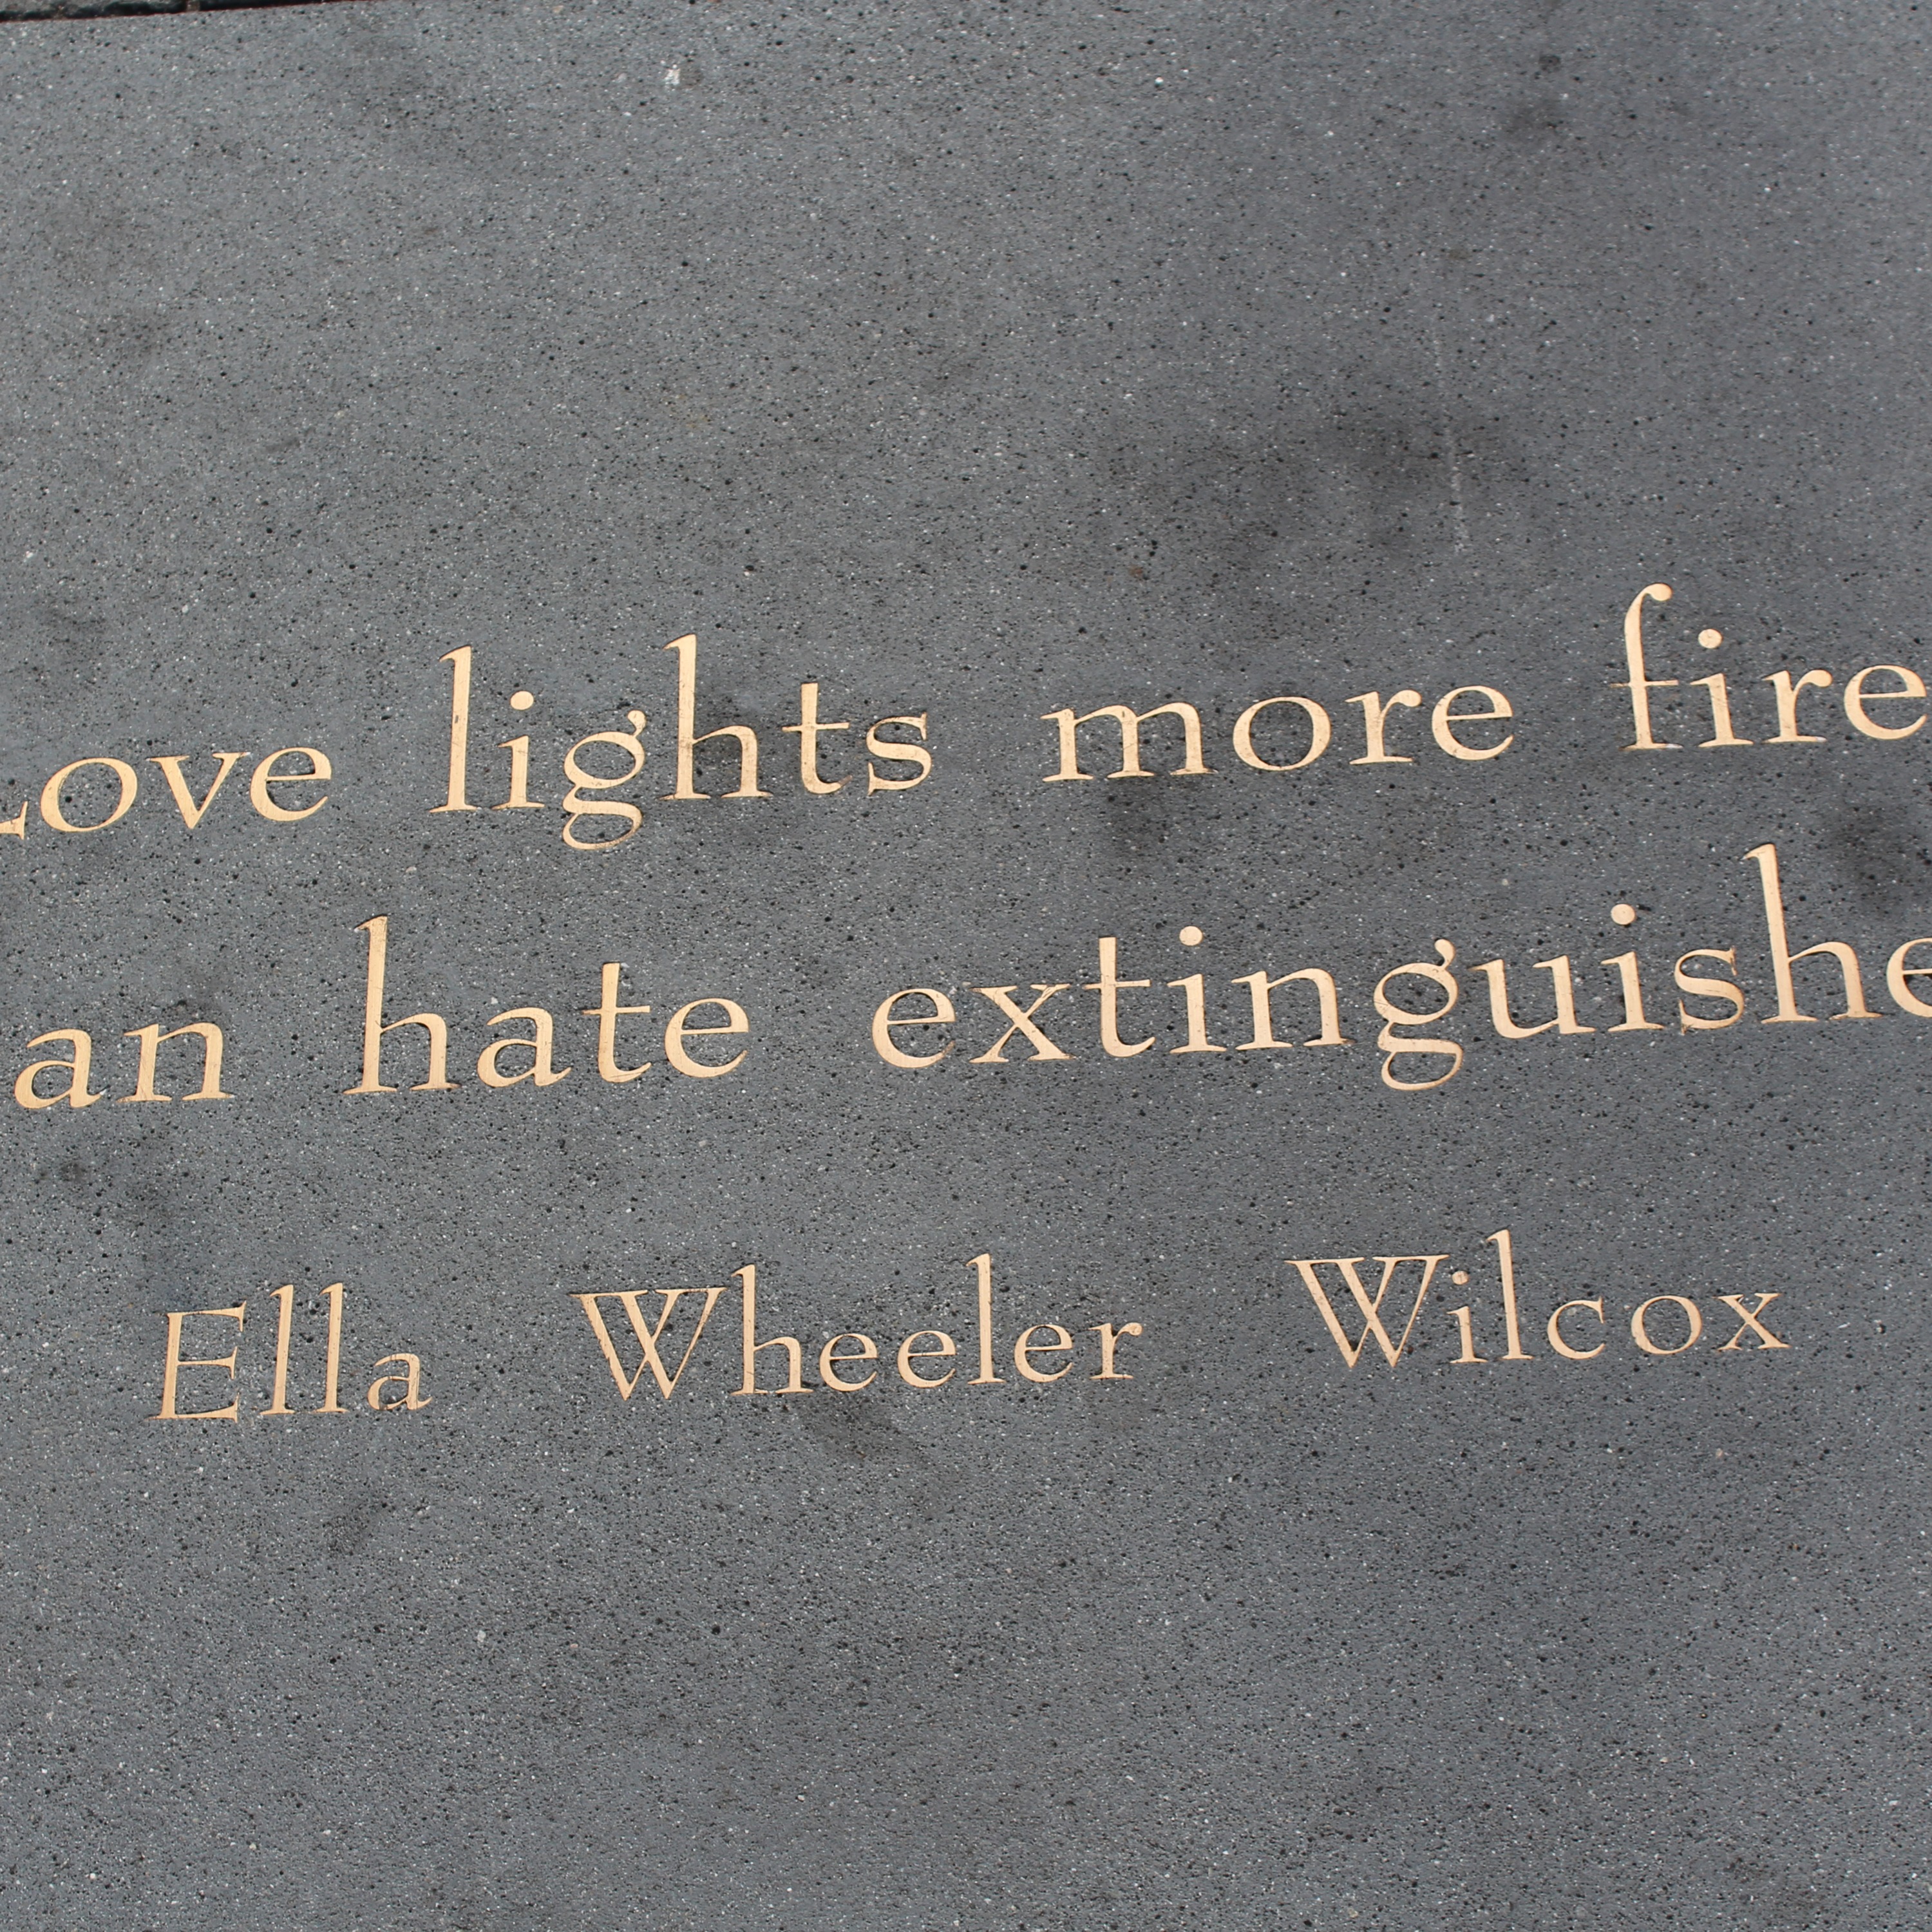 Love lights more fire
an hate extinguishe
Ella Wheeler Wilcox